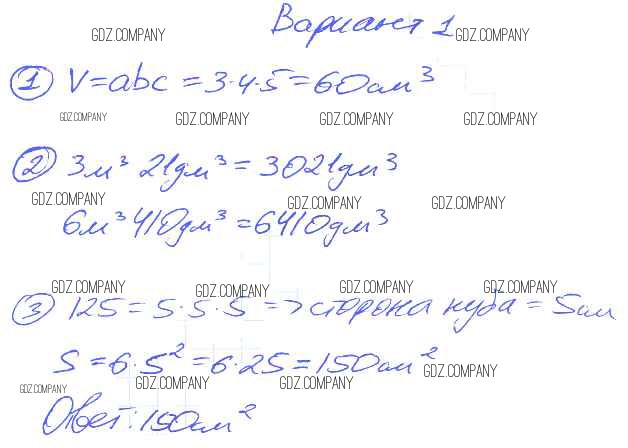 Вариант 1
GDZ.COMPANY GDZ.COMPANY
① V=abc=3·4·5=60см³
GDZ.COMPANY GDZ.COMPANY GDZ.COMPANY GDZ.COMPANY
② 3м³ 21дм³=3021дм³
GDZ.COMPANY GDZ.COMPANY GDZ.COMPANY
6м³ 410дм³=6410дм³
GDZ.COMPANY GDZ.COMPANY GDZ.COMPANY GDZ.COMPANY
③ 125=5·5·5=>сторона куба=5см
S=6·5²=6·25=150см²
GDZ.COMPANY GDZ.COMPANY GDZ.COMPANY GDZ.COMPANY
Ответ: 150см²